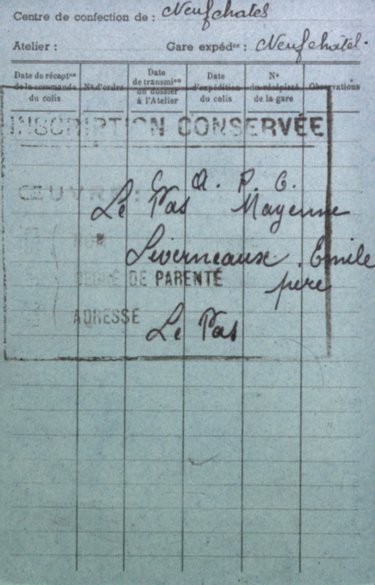 Centre de confection de : Neufchatel
Atelier : Gare expédre : Neufchâtel.
Date de récepton de la commande du colis
N° d'ordre
Date de transmion du dossier à l'Atelier
Date d'expédition du colis
N° du récépissé de la gare
Observations
INSCRIPTION CONSERVÉE
ŒUVRE C. A. P. G.
Le Pas Mayenne
NOM Liverneaux. Emile
DEGRÉ DE PARENTÉ père
ADRESSE Le Pas